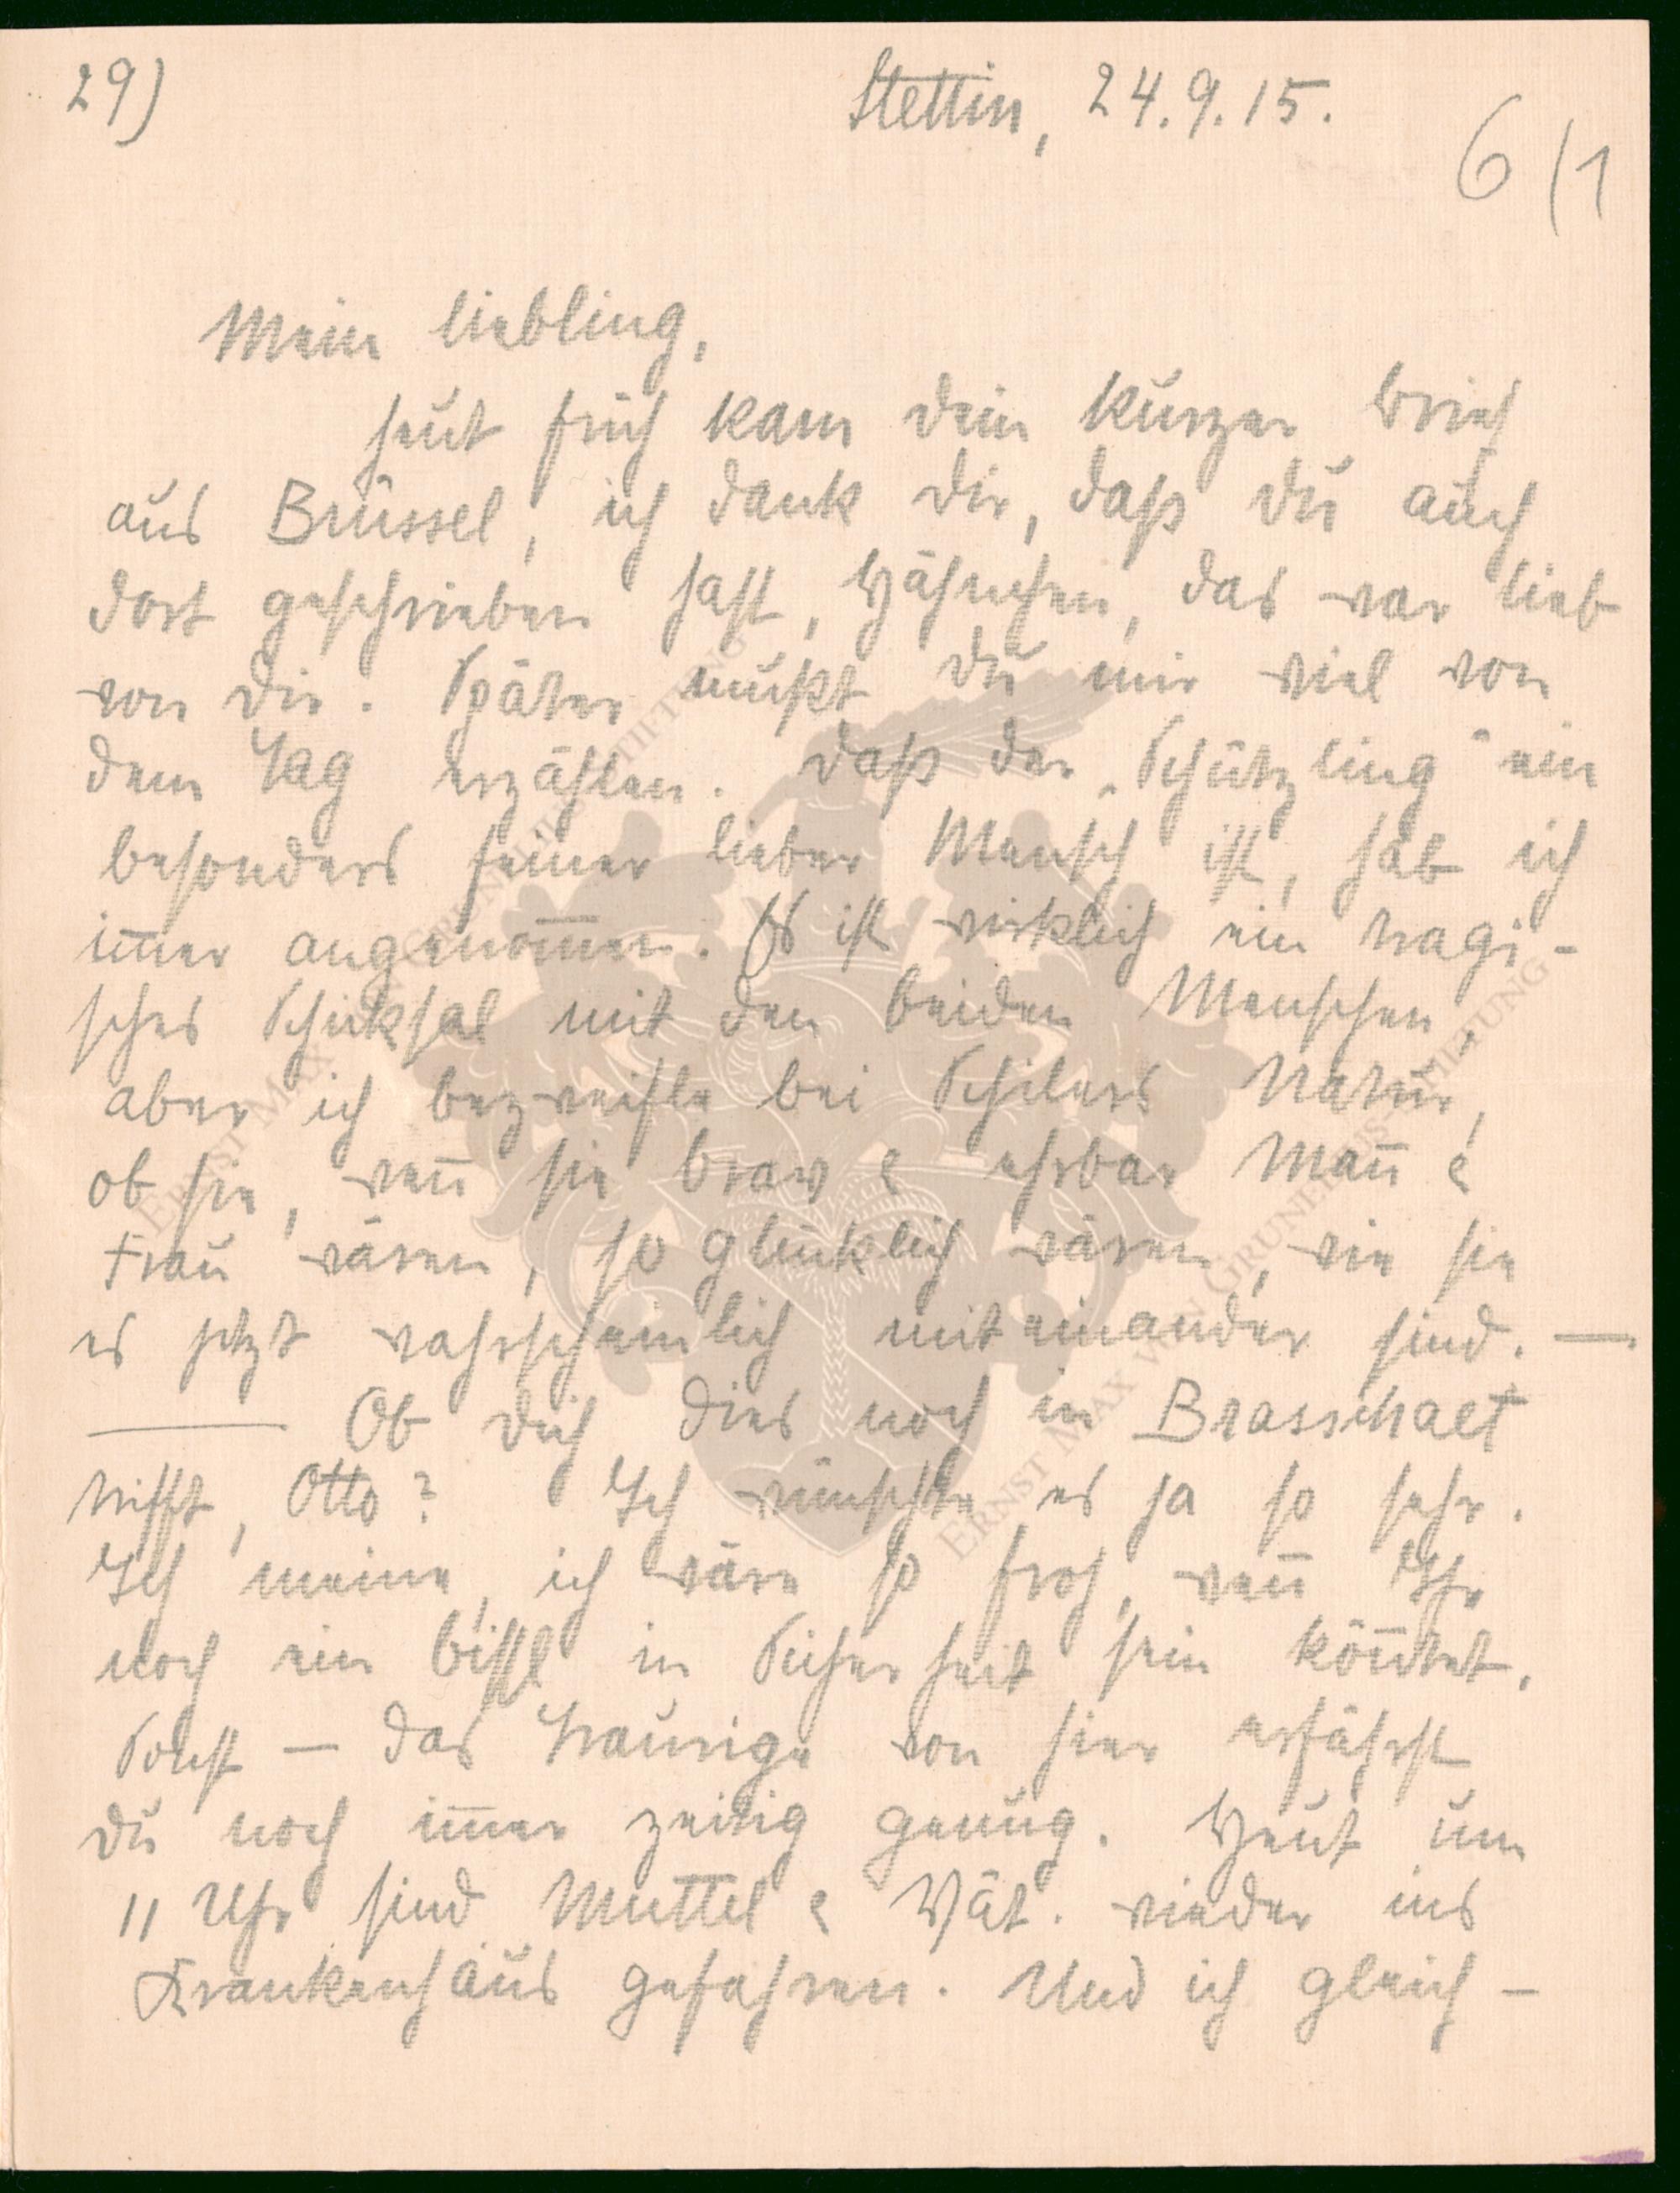 29)
Stettin, 24.9.15.
6/1
Mein Liebling,
heut früh kam dein kurzer Brief
aus Brüssel, ich dank dir, daß du auch
dort geschrieben hast, Hähnchen, das war lieb
von dir. Später mußt du mir viel von
dem Tag erzählen. Daß der „Schützling" ein
besonders feiner lieber Mensch ist, hab ich
im̄er angenom̄en. Es ist wirklich ein tragi-
sches Schicksal mit den beiden Menschen,
aber ich bezweifle bei Natur,
ob sie, wen̄ sie brav & ehrbar Man̄ &
Frau wären, so glücklich wären, wie sie
es jetzt wahrscheinlich miteinander sind. —
— Ob dich dies noch in Brasschaet
trifft, Otto? Ich wünschte es ja so sehr.
Ich meine, ich wäre so froh, wen̄ Ihr
noch ein bissl in Sicherheit sein kön̄tet.
Sonst — das Traurige von hier erfährst
du noch im̄er zeitig genug. Heut um
11 Uhr sind Muttel & Vät. wieder ins
Krankenhaus gefahren. Und ich gleich-
ERNST MAX VON GRUNELIUS-STIFTUNG
ERNST MAX VON GRUNELIUS-STIFTUNG